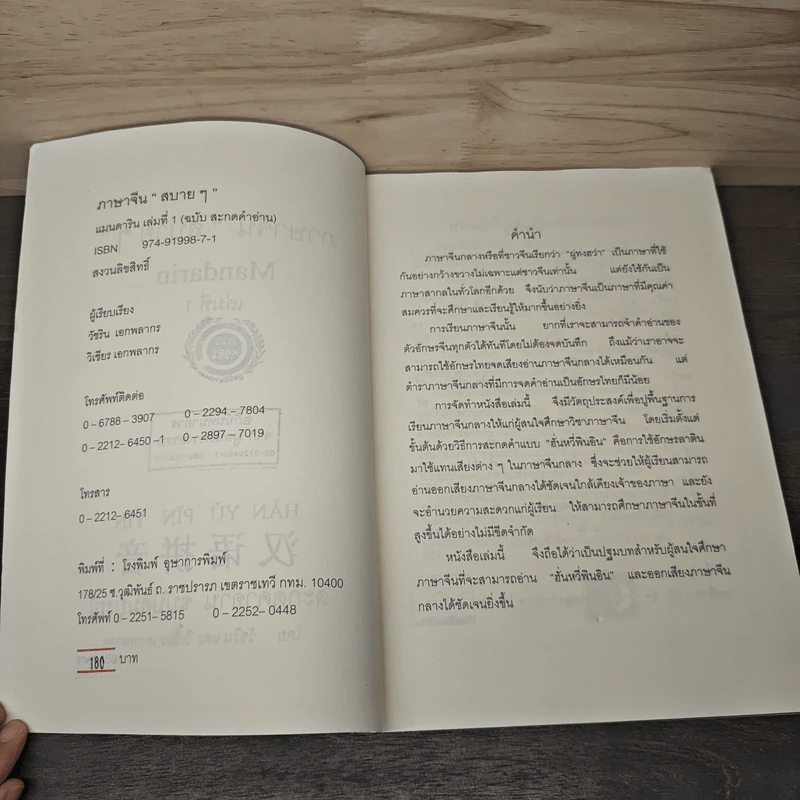 ภาษาจีน " สบาย ๆ "
แมนดาริน เล่มที่ 1 (ฉบับ สะกดคำอ่าน)
ISBN 974-91998-7-1
สงวนลิขสิทธิ์
ผู้เรียบเรียง
วัชริน เอกพลากร
วิเชียร เอกพลากร
โทรศัพท์ติดต่อ
0 – 6788 – 3907 0 – 2294 – 7804
0 – 2212 – 6450 –1 0 – 2897 – 7019
โทรสาร
0 – 2212– 6451
พิมพ์ที่ : โรงพิมพ์ อุษาการพิมพ์
178/25 ซ.วุฒิพันธ์ ถ. ราชปรารภ เขตราชเทวี กทม. 10400
โทรศัพท์ 0 – 2251– 5815 0 – 2252 – 0448
180 บาท
คำนำ
ภาษาจีนกลางหรือที่ชาวจีนเรียกว่า "ผู่ทงฮว่า" เป็นภาษาที่ใช้
กันอย่างกว้างขวางไม่เฉพาะแต่ชาวจีนเท่านั้น แต่ยังใช้กันเป็น
ภาษาสากลในทั่วโลกอีกด้วย จึงนับว่าภาษาจีนเป็นภาษาที่มีคุณค่า
สมควรที่จะศึกษาและเรียนรู้ให้มากขึ้นอย่างยิ่ง
การเรียนภาษาจีนนั้น ยากที่เราจะสามารถจำคำอ่านของ
ตัวอักษรจีนทุกตัวได้ทันทีโดยไม่ต้องจดบันทึก ถึงแม้ว่าเราอาจจะ
สามารถใช้อักษรไทยจดเสียงอ่านภาษาจีนกลางได้เหมือนกัน แต่
ตำราภาษาจีนกลางที่มีการจดคำอ่านเป็นอักษรไทยก็มีน้อย
การจัดทำหนังสือเล่มนี้ จึงมีวัตถุประสงค์เพื่อปูพื้นฐานการ
เรียนภาษาจีนกลางให้แก่ผู้สนใจศึกษาวิชาภาษาจีน โดยเริ่มตั้งแต่
ขั้นต้นด้วยวิธีการสะกดคำแบบ "ฮั่นหวี่พินอิน" คือการใช้อักษรลาติน
มาใช้แทนเสียงต่าง ๆ ในภาษาจีนกลาง ซึ่งจะช่วยให้ผู้เรียนสามารถ
อ่านออกเสียงภาษาจีนกลางได้ชัดเจนใกล้เคียงเจ้าของภาษา และยัง
จะอำนวยความสะดวกแก่ผู้เรียน ให้สามารถศึกษาภาษาจีนในชั้นที่
สูงขึ้นได้อย่างไม่มีขีดจำกัด
หนังสือเล่มนี้ จึงถือได้ว่าเป็นปฐมบทสำหรับผู้สนใจศึกษา
ภาษาจีนที่จะสามารถอ่าน "ฮั่นหวี่พินอิน" และออกเสียงภาษาจีน
กลางได้ชัดเจนยิ่งขึ้น